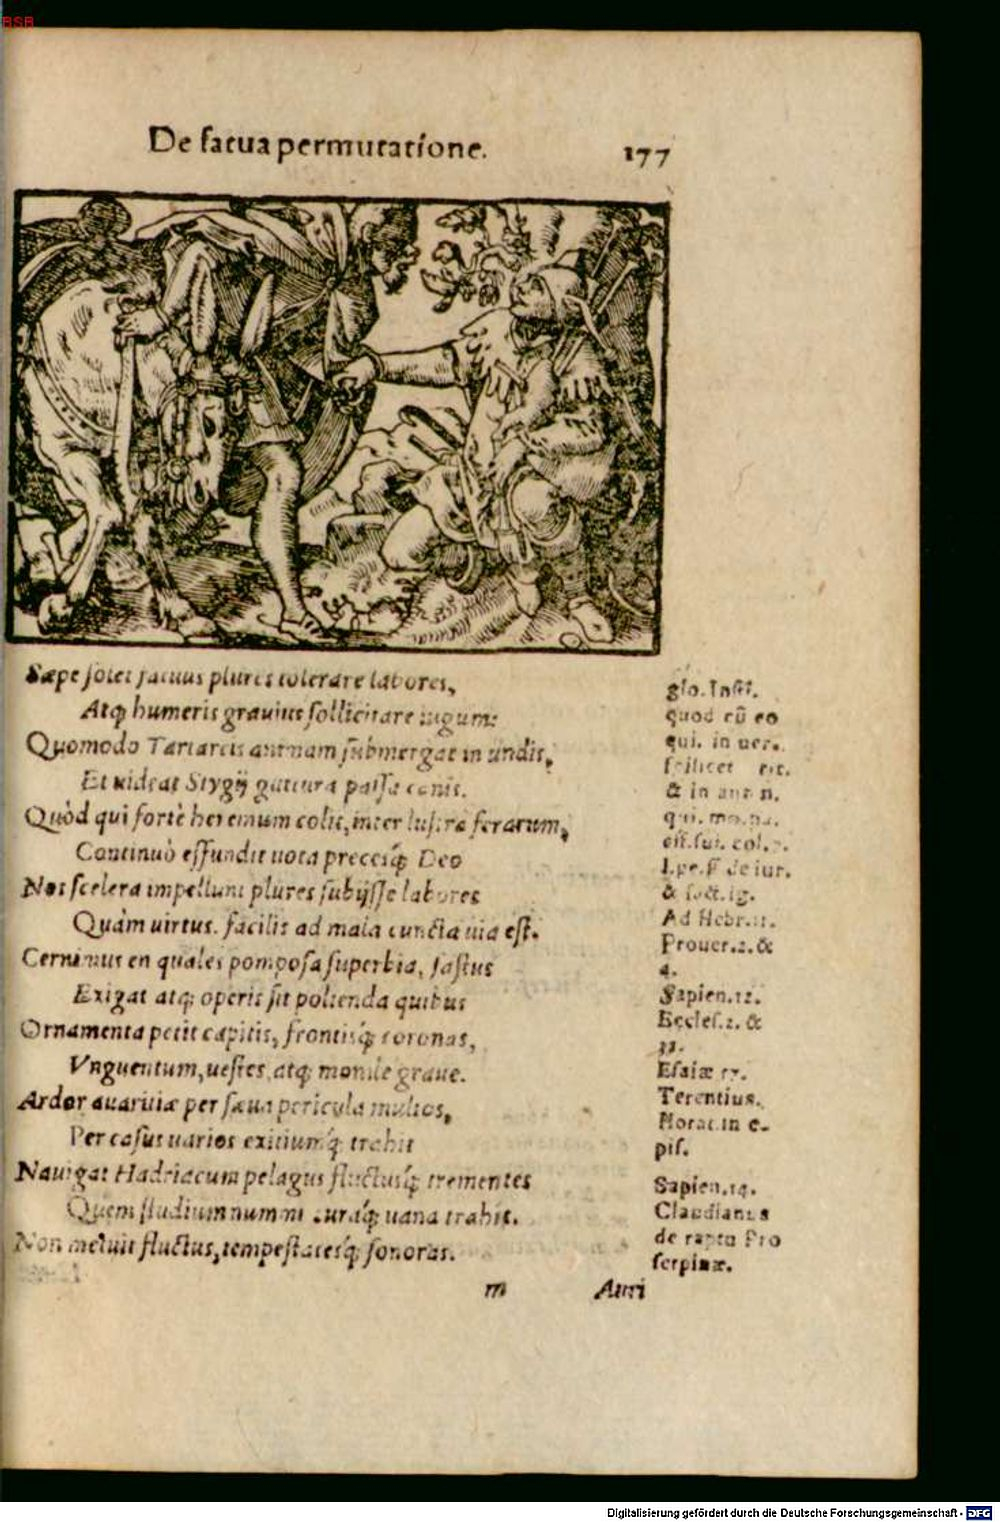 BSB
De fatua permutatione.
177
Sæpe solet fatuus plures tolerare labores,
Atq; humeris grauius sollicitare iugum:
Quomodo Tartareis animam submergat in undis,
Et uideat Stygij guttura passa canis.
Quòd qui fortè heremum colit, inter lustra ferarum,
Continuò effundit uota precesq́; Deo
Nos scelera impellunt plures subijsse labores
Quàm uirtus. facilis ad mala cuncta uia est.
Cernimus en quales pomposa superbia, fastus
Exigat atq; operis sit polienda quibus
Ornamenta petit capitis, frontisq́; coronas,
Vnguentum, uestes, atq; monile graue.
Ardor auaritiæ per sæua pericula multos,
Per casus uarios exitiumq́; trahit
Nauigat Hadriacum pelagus fluctusq́; trementes
Quem studium nummi curaq́; uana trahit.
Non metuit fluctus, tempestatesq́; sonoras.
glo. Insti.
quod cū eo
qui. in uer.
scilicet
& in
Ad Hebr.11.
Prouer.2. &
4.
Sapien.12.
Eccles.2. &
Esaiæ
Terentius.
Horat. in e-
pis.
Sapien.14.
Claudianus
de raptu Pro
serpinæ.
m
Auri
Digitalisierung gefördert durch die Deutsche Forschungsgemeinschaft - DFG